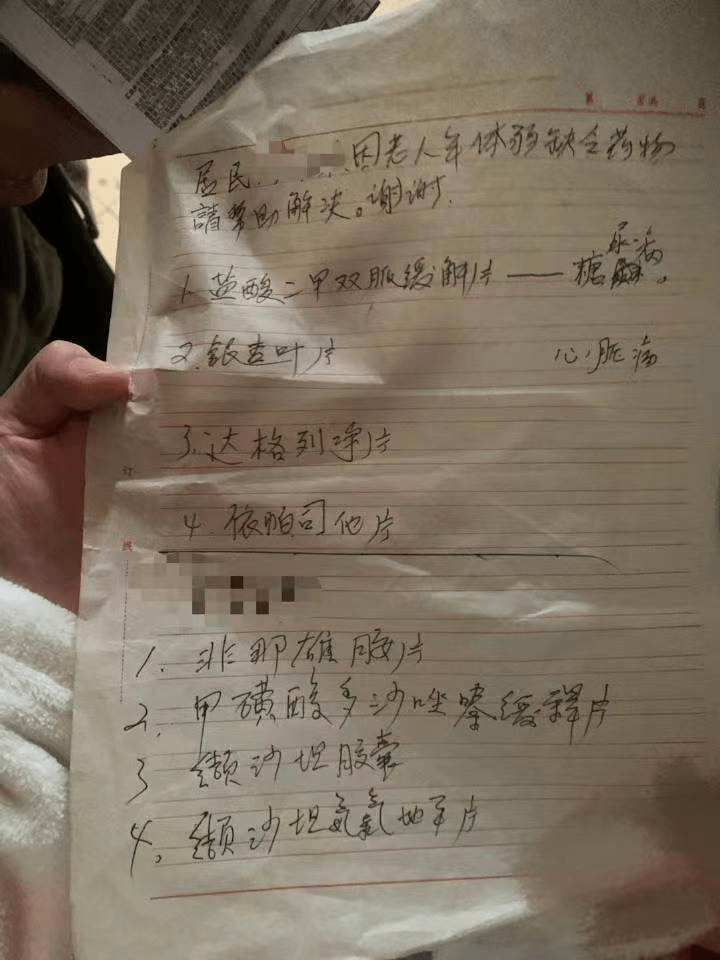 居民 因老人年体弱缺乏药物
請幫助解决。谢谢.
1. 盐酸二甲双胍缓解片 —— 糖尿病。
2. 银杏叶片 心脏病
3. 达格列净片
4. 依帕司他片
1. 非那雄胺片
2. 甲磺酸多沙唑嗪缓释片
3 缬沙坦胶囊
4. 缬沙坦氨氯地平片
订
线